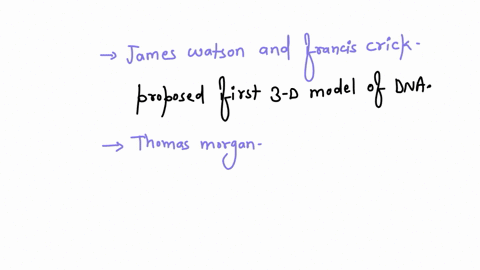 → James watson and francis crick.
proposed first 3-D model of DNA.
→ Thomas morgan-